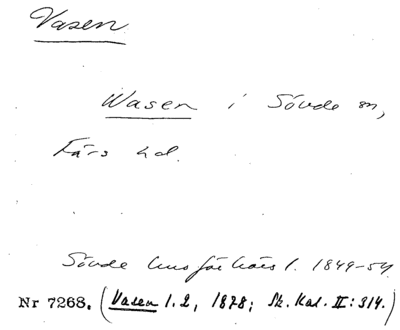 Vasen
Wasen i Sövde sn,
Färs hd.
Sövde husförhörs l. 1849-54
Nr 7268. (Vasen 1.2, 1878; Sk. Kal. II: 314.)